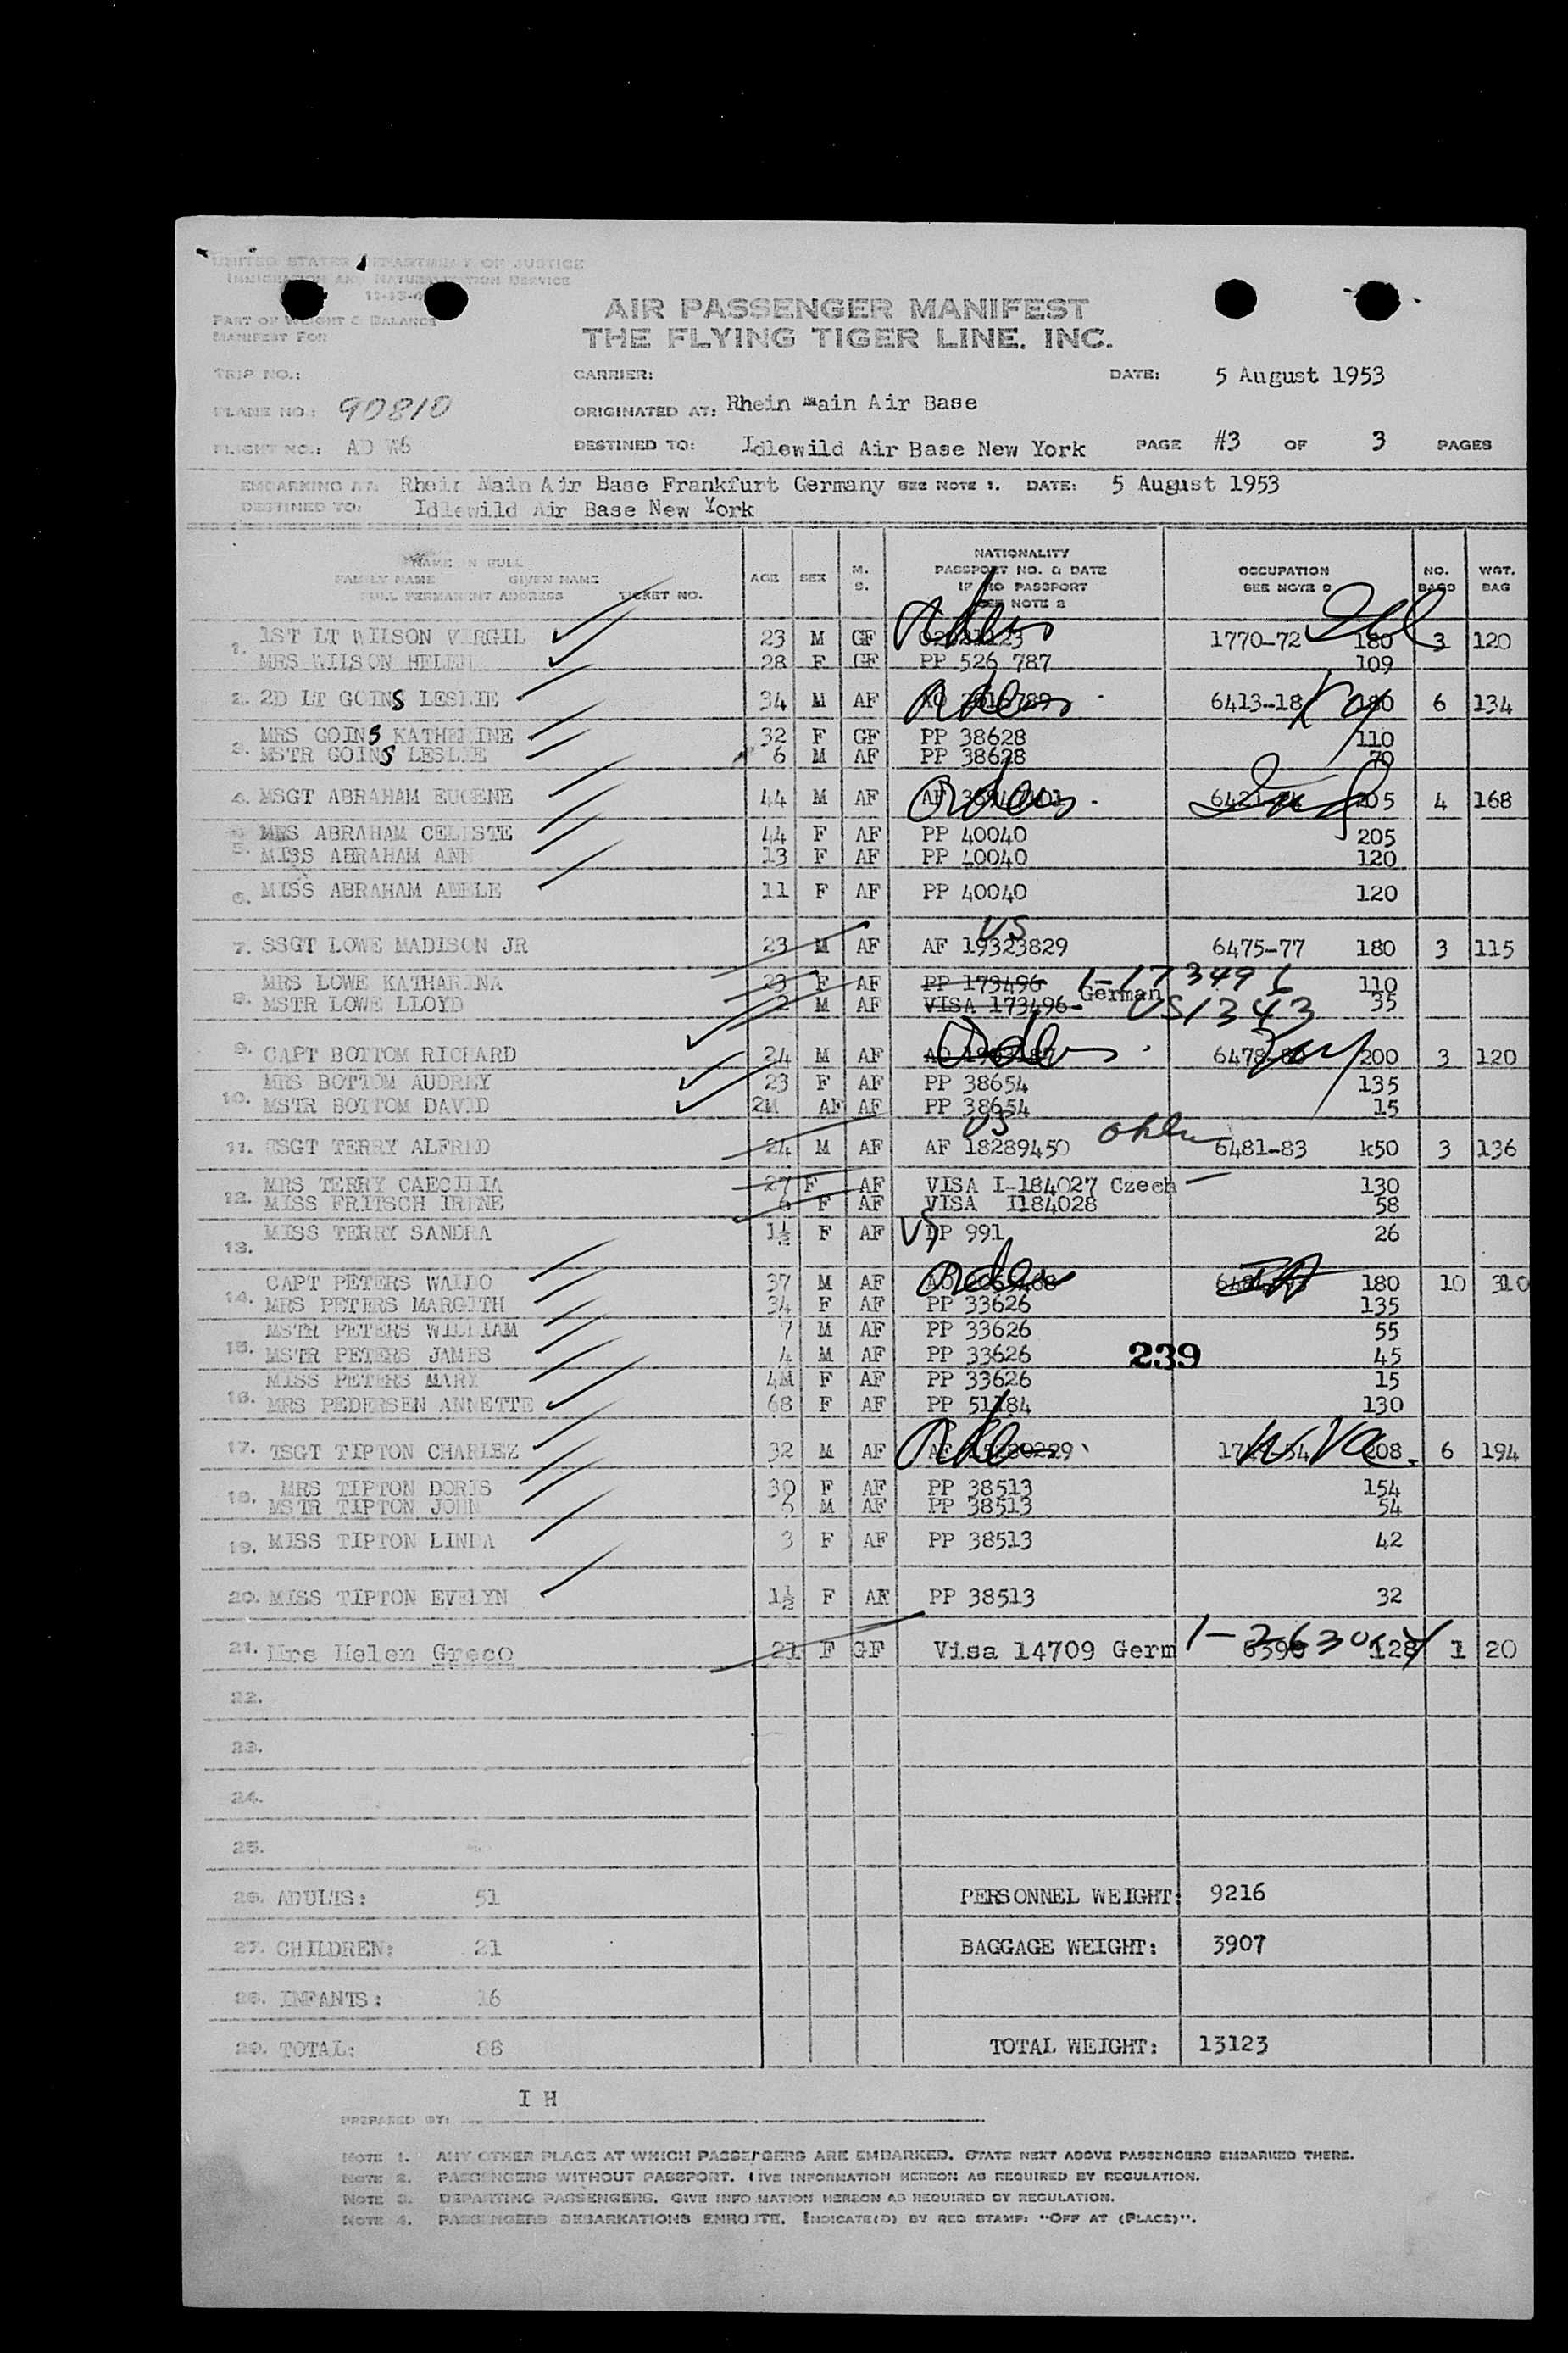 UNITED STATES DEPARTMENT OF JUSTICE
IMMIGRATION AND NATURALIZATION SERVICE
11-13-4
PART OF WEIGHT & BALANCE
MANIFEST FOR
AIR PASSENGER MANIFEST
THE FLYING TIGER LINE, INC.
TRIP NO.: CARRIER: DATE: 5 August 1953
PLANE NO.: 90810 ORIGINATED AT: Rhein Main Air Base
FLIGHT NO.: AD W6 DESTINED TO: Idlewild Air Base New York PAGE #3 OF 3 PAGES
EMBARKING AT: Rhein Main Air Base Frankfurt Germany SEE NOTE 1. DATE: 5 August 1953
DESTINED TO: Idlewild Air Base New York
NAME IN FULL
FAMILY NAME GIVEN NAME
FULL PERMANENT ADDRESS TICKET NO. AGE SEX M. S. NATIONALITY PASSPORT NO. & DATE IF NO PASSPORT SEE NOTE 2 OCCUPATION SEE NOTE 3 NO. BAGS WGT. BAG
1. 1ST LT WILSON VIRGIL 23 M GF 1770-72 180 3 120
MRS WILSON HELEN 28 F GF PP 526 787 109
2. 2D LT GOINS LESLIE 34 M AF 6413-18 Ky 180 6 134
MRS GOINS KATHERINE 32 F GF PP 38628 110
3. MSTR GOINS LESLIE 6 M AF PP 38628 70
4. MSGT ABRAHAM EUGENE 44 M AF Orders 205 4 168
MRS ABRAHAM CELESTE 44 F AF PP 40040 205
5. MISS ABRAHAM ANN 13 F AF PP 40040 120
6. MISS ABRAHAM ADELE 11 F AF PP 40040 120
US
7. SSGT LOWE MADISON JR 23 M AF AF 19323829 6475-77 180 3 115
MRS LOWE KATHARINA 23 F AF PP 173496 1-173496 110
German
8. MSTR LOWE LLOYD 2 M AF VISA 173496 US 1343 35
9. CAPT BOTTOM RICHARD 24 M AF Orders 200 3 120
MRS BOTTOM AUDREY 23 F AF PP 38654 135
10. MSTR BOTTOM DAVID 2M AF AF PP 38654 15
US
11. SSGT TERRY ALFRED 24 M AF AF 18289450 6481-83 k50 3 136
MRS TERRY CAECILIA 27 F AF VISA I-184027 Czech 130
12. MISS FRITSCH IRENE 6 F AF VISA I184028 58
13. MISS TERRY SANDRA 1½ F AF US PP 991 26
CAPT PETERS WALDO 37 M AF Orders 180 10 310
14. MRS PETERS MARGITH 34 F AF PP 33626 135
MSTR PETERS WILLIAM 7 M AF PP 33626 55
15. MSTR PETERS JAMES 4 M AF PP 33626 239 45
MISS PETERS MARY 4M F AF PP 33626 15
16. MRS PEDERSEN ANNETTE 68 F AF PP 51184 130
17. TSGT TIPTON CHARLEZ 32 M AF W Va. 208 6 194
18. MRS TIPTON DORIS 30 F AF PP 38513 154
MSTR TIPTON JOHN 6 M AF PP 38513 54
19. MISS TIPTON LINDA 3 F AF PP 38513 42
20. MISS TIPTON EVELYN 1½ F AF PP 38513 32
21. Mrs Helen Greco 21 F GF Visa 14709 Germ 128 1 20
22.
23.
24.
25.
26. ADULTS: 51 PERSONNEL WEIGHT: 9216
27. CHILDREN: 21 BAGGAGE WEIGHT: 3907
28. INFANTS: 16
29. TOTAL: 88 TOTAL WEIGHT: 13123
I H
PREPARED BY:
NOTE 1. ANY OTHER PLACE AT WHICH PASSENGERS ARE EMBARKED. STATE NEXT ABOVE PASSENGERS EMBARKED THERE.
NOTE 2. PASSENGERS WITHOUT PASSPORT. GIVE INFORMATION HEREON AS REQUIRED BY REGULATION.
NOTE 3. DEPARTING PASSENGERS. GIVE INFORMATION HEREON AS REQUIRED BY REGULATION.
NOTE 4. PASSENGERS DEBARKATIONS ENROUTE. INDICATE(D) BY RED STAMP: "OFF AT (PLACE)".